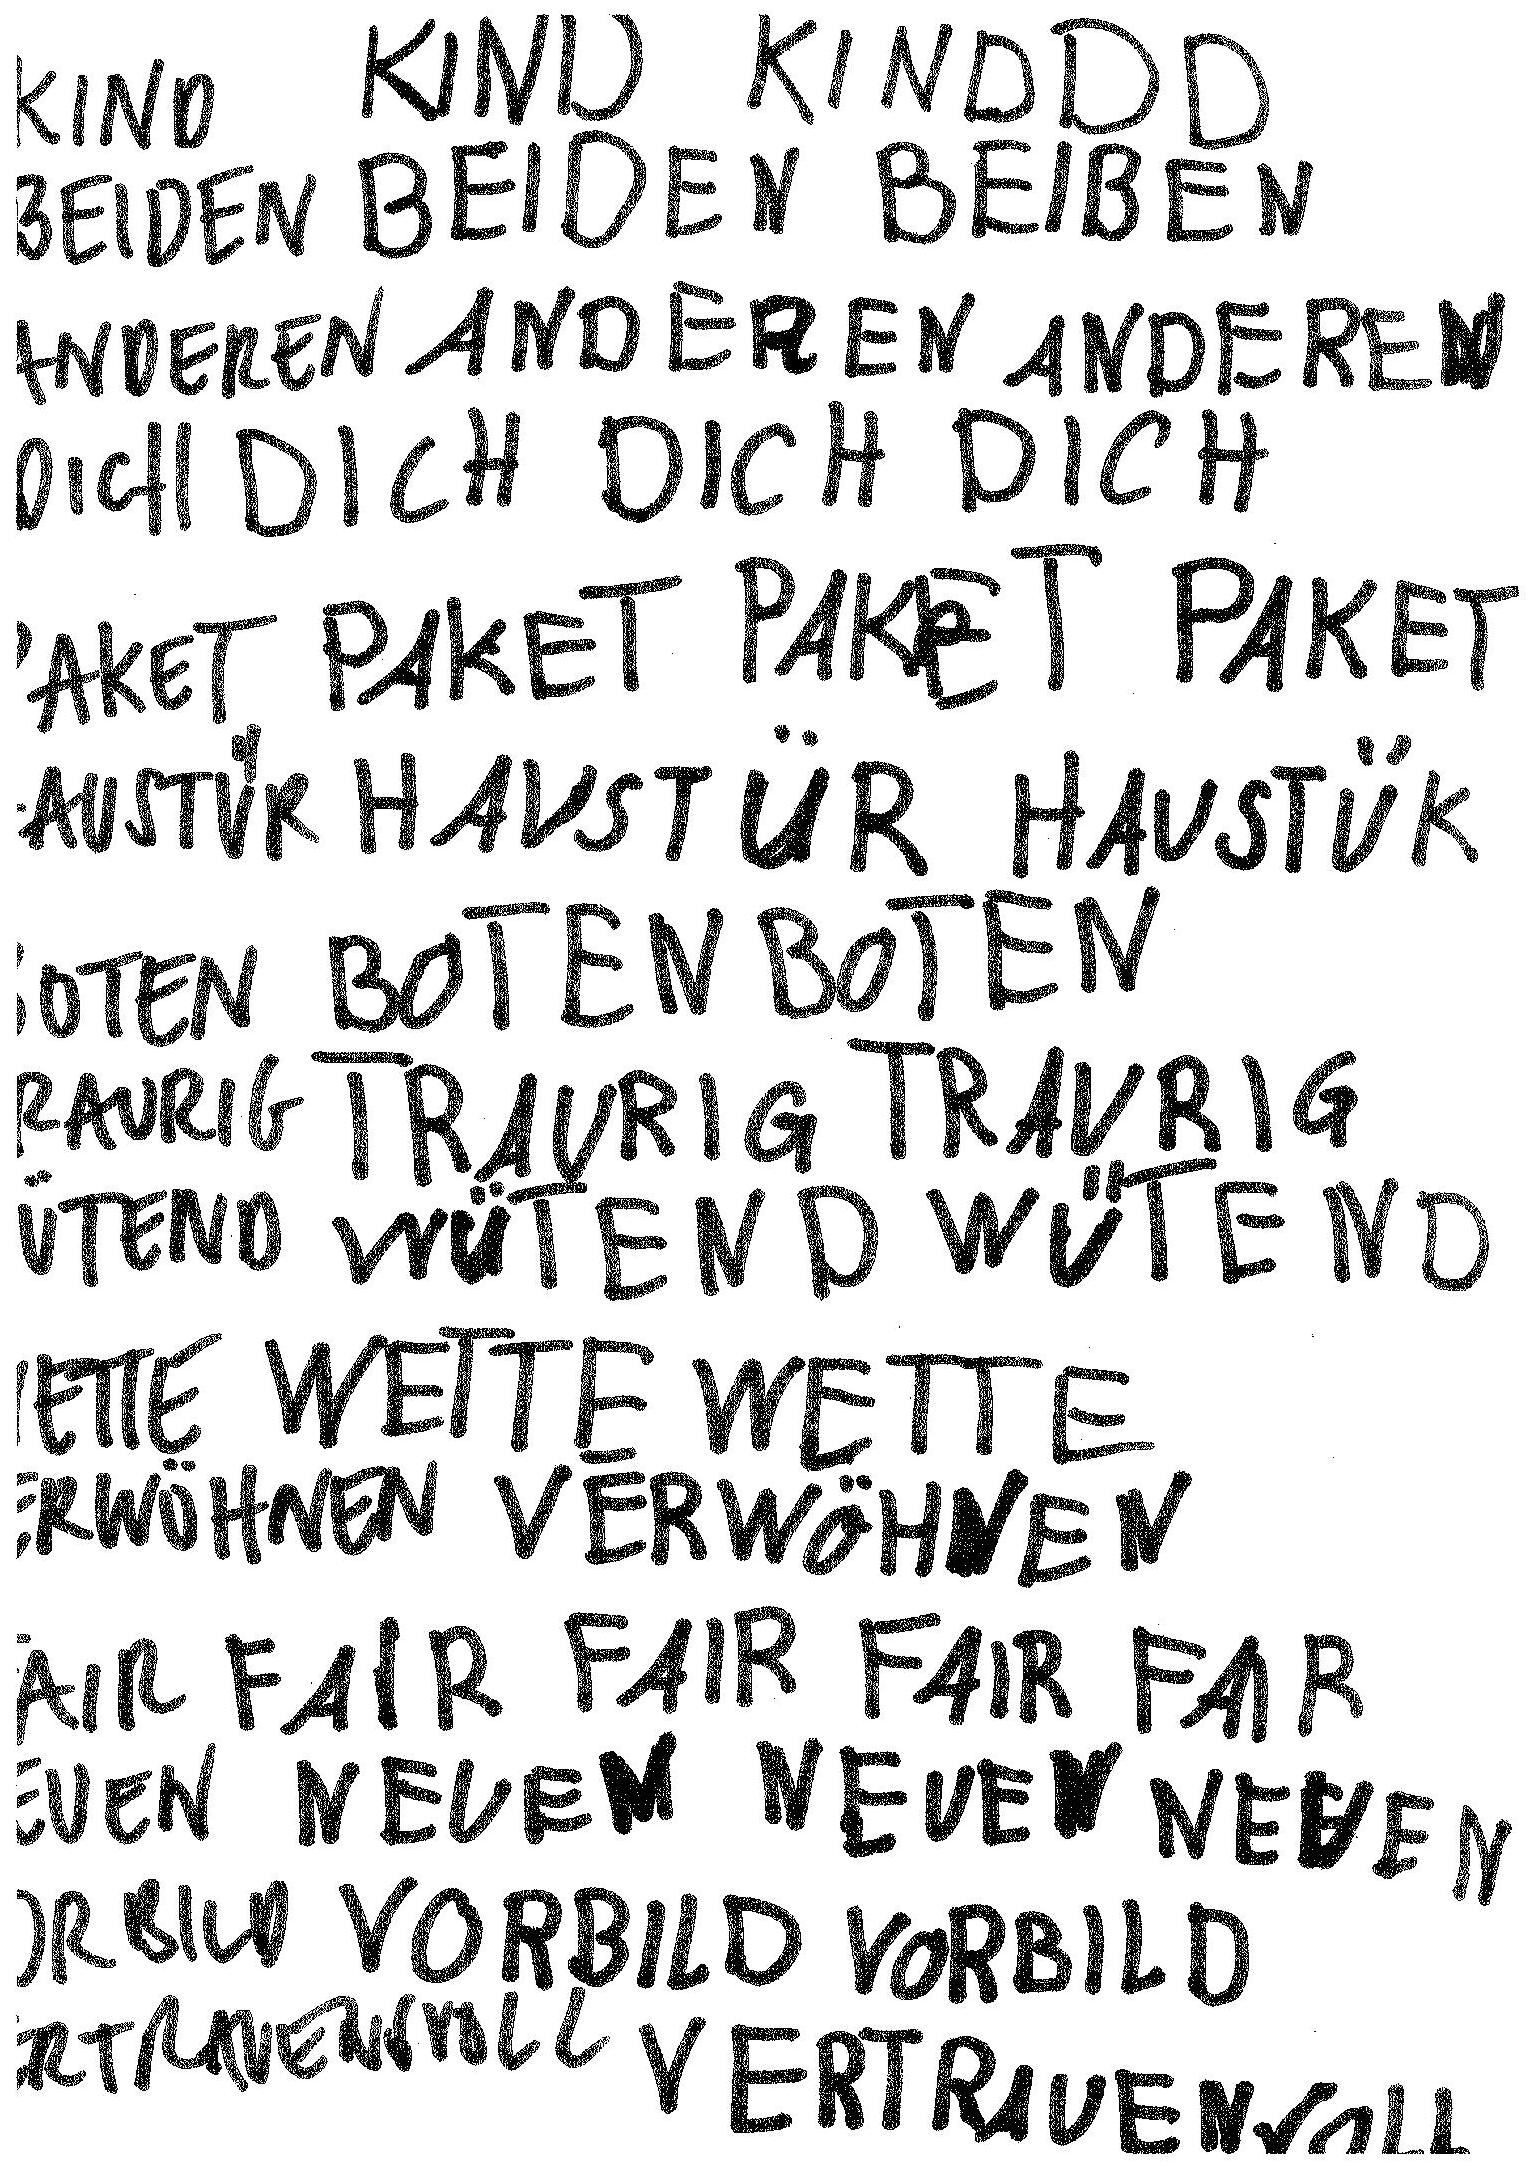 KIND KIND KINDDD
BEIDEN BEIDEN BEIBEN
ANDEREN ANDEREN ANDEREN
DICH DICH DICH DICH
PAKET PAKET PAKET PAKET
HAUSTÜR HAUSTÜR HAUSTÜK
BOTEN BOTEN BOTEN
RAURIG TRAURIG TRAURIG
ÜTEND WÜTEND WÜTEND
ETTE WETTE WETTE
ERWÖHNEN VERWÖHNEN
AIR FAIR FAIR FAIR FAIR
EUEN NEUEN NEUEN NEUEN
ORBILD VORBILD VORBILD
ERTRAUENSVOLL VERTRAUENVOLL